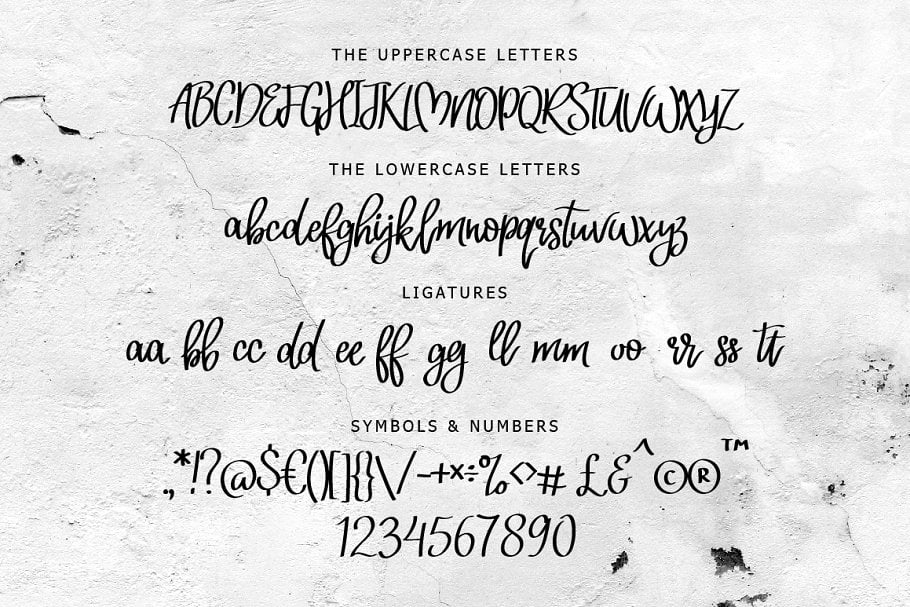 THE UPPERCASE LETTERS
ABCDEFGHIJKLMNOPQRSTUVWXYZ
THE LOWERCASE LETTERS
abcdefghijklmnopqrstuvwxyz
LIGATURES
aa bb cc dd ee ff gg ll mm oo rr ss tt
SYMBOLS & NUMBERS
.,*!?@$€()[]{}\/-+×÷%<>#£&^©®™
1234567890